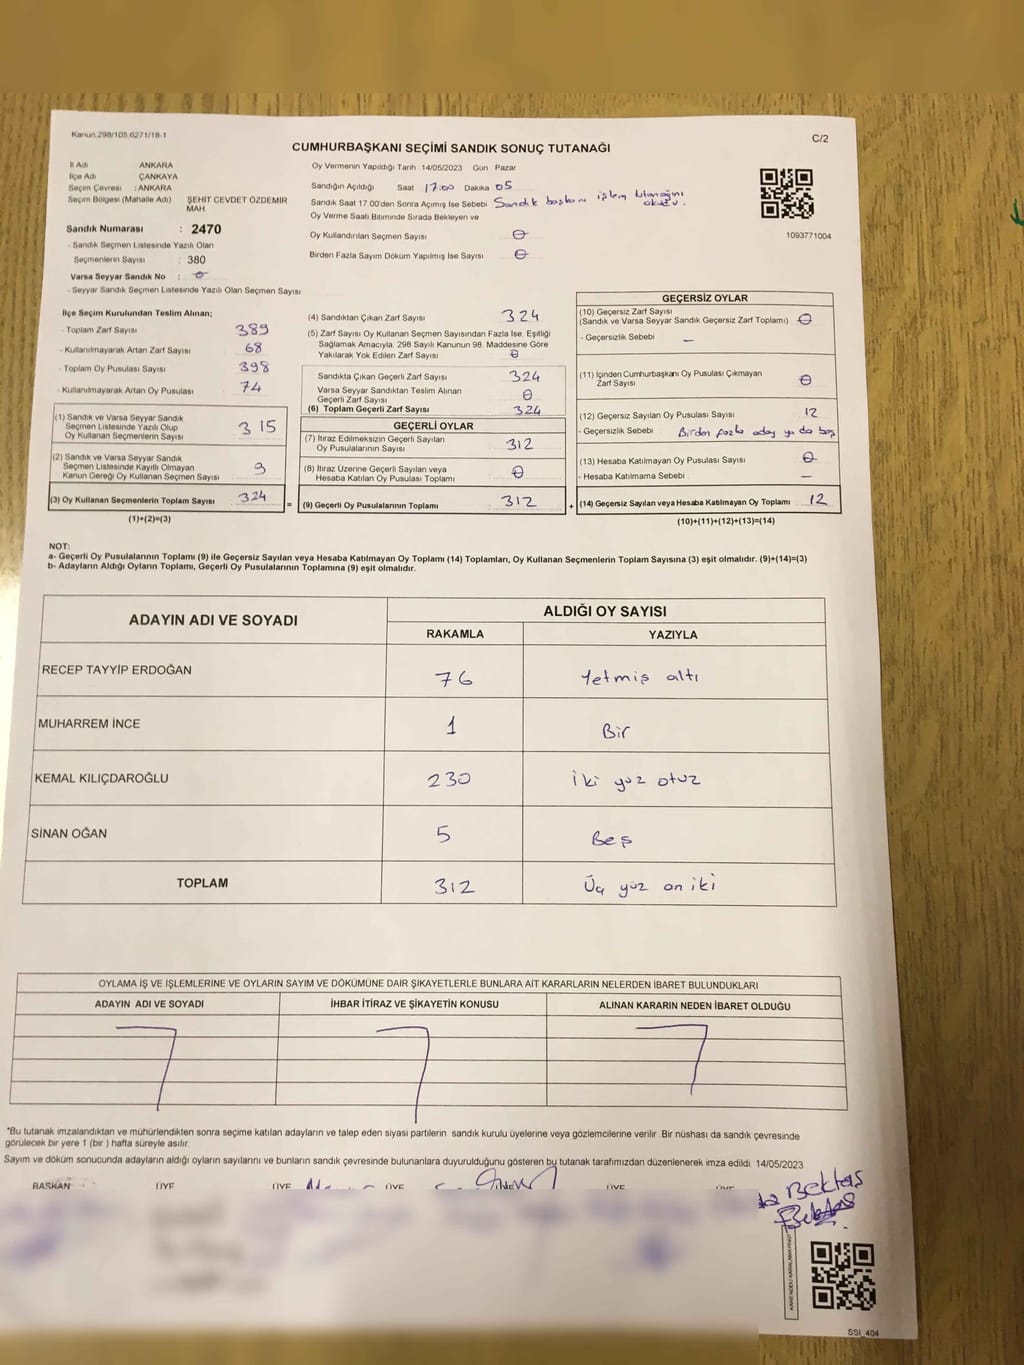 Kanun 298/105,6271/18-1
C/2
CUMHURBAŞKANI SEÇİMİ SANDIK SONUÇ TUTANAĞI
İl Adı ANKARA
İlçe Adı ÇANKAYA
Seçim Çevresi : ANKARA
Seçim Bölgesi (Mahalle Adı) ŞEHİT CEVDET ÖZDEMİR MAH
Sandık Numarası : 2470
- Sandık Seçmen Listesinde Yazılı Olan
Seçmenlerin Sayısı : 380
Varsa Seyyar Sandık No : 0
- Seyyar Sandık Seçmen Listesinde Yazılı Olan Seçmen Sayısı
Oy Vermenin Yapıldığı Tarih 14/05/2023 Gün Pazar
Sandığın Açıldığı Saat 17:00 Dakika 05
Sandık Saat 17.00'den Sonra Açımış İse Sebebi Sandık başkanı işlem tutanağını okudu.
Oy Verme Saati Bitiminde Sırada Bekleyen ve
Oy Kullandırılan Seçmen Sayısı 0
Birden Fazla Sayım Döküm Yapılmış İse Sayısı 0
1093771004
İlçe Seçim Kurulundan Teslim Alınan;
- Toplam Zarf Sayısı 389
- Kullanılmayarak Artan Zarf Sayısı 68
- Toplam Oy Pusulası Sayısı 398
- Kullanılmayarak Artan Oy Pusulası 74
(1) Sandık ve Varsa Seyyar Sandık
Seçmen Listesinde Yazılı Olup
Oy Kullanan Seçmenlerin Sayısı 315
(2) Sandık ve Varsa Seyyar Sandık
Seçmen Listesinde Kayıtlı Olmayan
Kanun Gereği Oy Kullanan Seçmen Sayısı 9
(3) Oy Kullanan Seçmenlerin Toplam Sayısı 324 =
(1)+(2)=(3)
(4) Sandıktan Çıkan Zarf Sayısı 324
(5) Zarf Sayısı Oy Kullanan Seçmen Sayısından Fazla İse, Eşitliği
Sağlamak Amacıyla, 298 Sayılı Kanunun 98. Maddesine Göre
Yakılarak Yok Edilen Zarf Sayısı 0
Sandıkta Çıkan Geçerli Zarf Sayısı 324
Varsa Seyyar Sandıktan Teslim Alınan
Geçerli Zarf Sayısı 0
(6) Toplam Geçerli Zarf Sayısı 324
GEÇERLİ OYLAR
(7) İtiraz Edilmeksizin Geçerli Sayılan
Oy Pusulalarının Sayısı 312
(8) İtiraz Üzerine Geçerli Sayılan veya
Hesaba Katılan Oy Pusulası Toplamı 0
(9) Geçerli Oy Pusulalarının Toplamı 312 +
GEÇERSİZ OYLAR
(10) Geçersiz Zarf Sayısı
(Sandık ve Varsa Seyyar Sandık Geçersiz Zarf Toplamı) 0
- Geçersizlik Sebebi –
(11) İçinden Cumhurbaşkanı Oy Pusulası Çıkmayan
Zarf Sayısı 0
(12) Geçersiz Sayılan Oy Pusulası Sayısı 12
- Geçersizlik Sebebi Birden fazla aday ya da boş
(13) Hesaba Katılmayan Oy Pusulası Sayısı 0
- Hesaba Katılmama Sebebi –
(14) Geçersiz Sayılan veya Hesaba Katılmayan Oy Toplamı 12
(10)+(11)+(12)+(13)=(14)
NOT:
a- Geçerli Oy Pusulalarının Toplamı (9) ile Geçersiz Sayılan veya Hesaba Katılmayan Oy Toplamı (14) Toplamları, Oy Kullanan Seçmenlerin Toplam Sayısına (3) eşit olmalıdır. (9)+(14)=(3)
b- Adayların Aldığı Oyların Toplamı, Geçerli Oy Pusulalarının Toplamına (9) eşit olmalıdır.
ADAYIN ADI VE SOYADI ALDIĞI OY SAYISI
RAKAMLA YAZIYLA
RECEP TAYYİP ERDOĞAN 76 Yetmiş altı
MUHARREM İNCE 1 Bir
KEMAL KILIÇDAROĞLU 230 İki yüz otuz
SİNAN OĞAN 5 Beş
TOPLAM 312 Üç yüz on iki
OYLAMA İŞ VE İŞLEMLERİNE VE OYLARIN SAYIM VE DÖKÜMÜNE DAİR ŞİKAYETLERLE BUNLARA AİT KARARLARIN NELERDEN İBARET BULUNDUKLARI
ADAYIN ADI VE SOYADI İHBAR İTİRAZ VE ŞİKAYETİN KONUSU ALINAN KARARIN NEDEN İBARET OLDUĞU
*Bu tutanak imzalandıktan ve mühürlendikten sonra seçime katılan adayların ve talep eden siyasi partilerin sandık kurulu üyelerine veya gözlemcilerine verilir. Bir nüshası da sandık çevresinde
görülecek bir yere 1 (bir ) hafta süreyle asılır.
Sayım ve döküm sonucunda adayların aldığı oyların sayılarını ve bunların sandık çevresinde bulunanlara duyurulduğunu gösteren bu tutanak tarafımızdan düzenlenerek imza edildi. 14/05/2023
BAŞKAN ÜYE ÜYE ÜYE ÜYE ÜYE
Bektaş
SSI_404